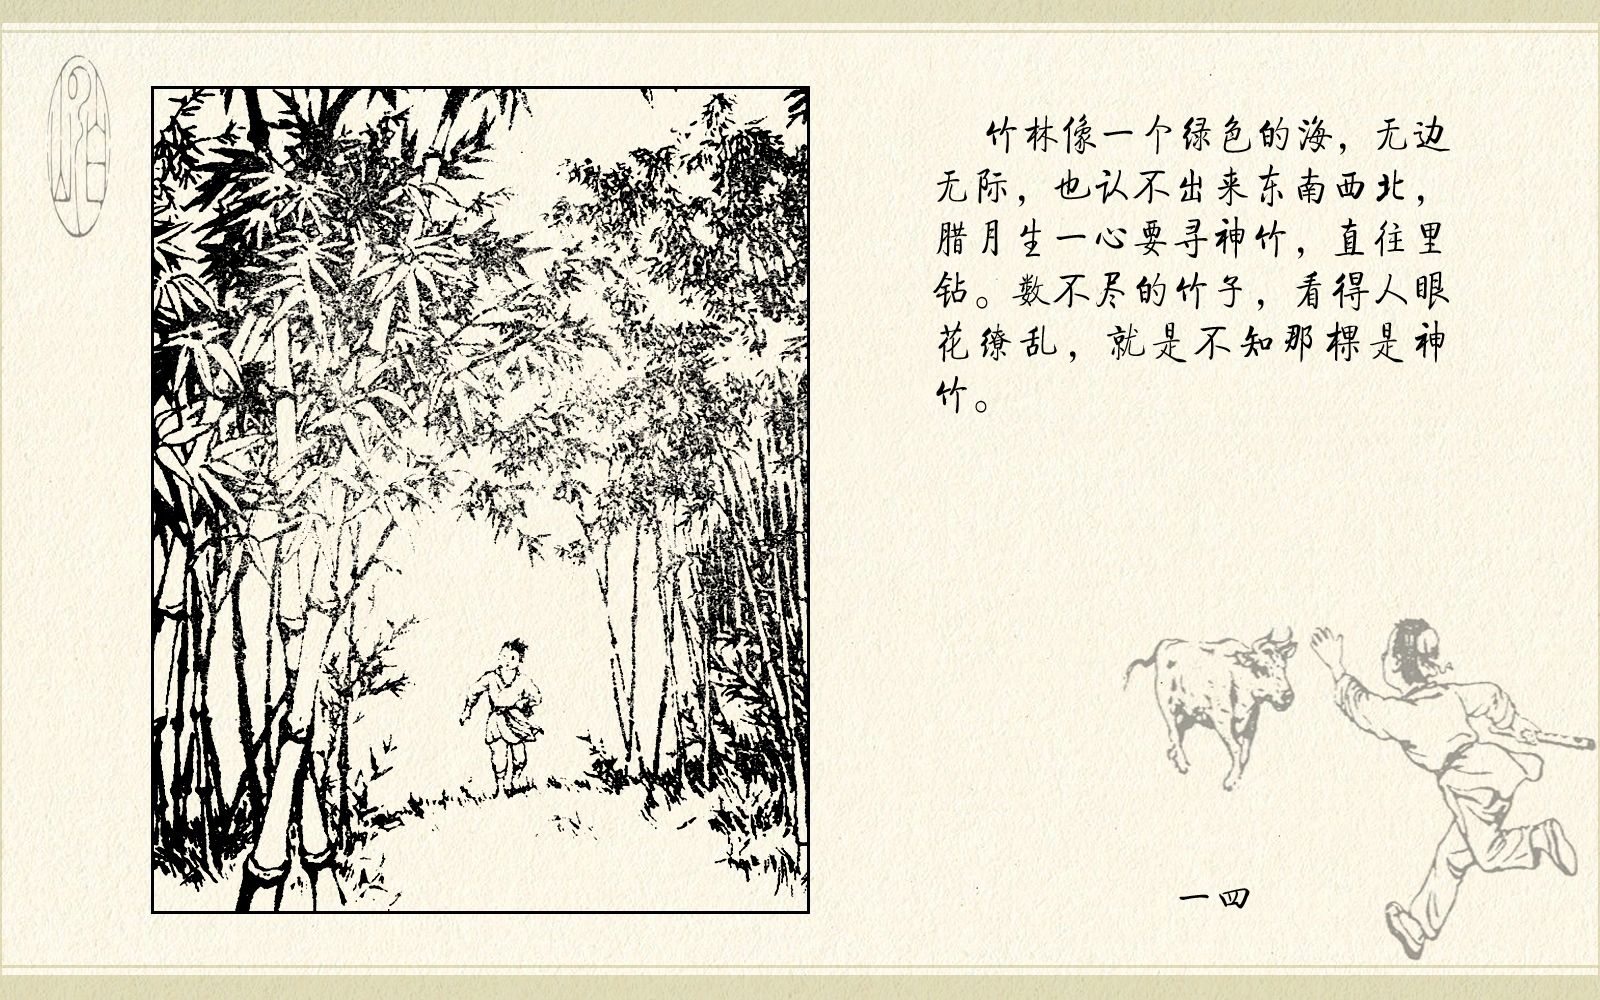 竹林像一个绿色的海，无边
无际，也认不出来东南西北，
腊月生一心要寻神竹，直往里
钻。数不尽的竹子，看得人眼
花缭乱，就是不知那棵是神
竹。
一四